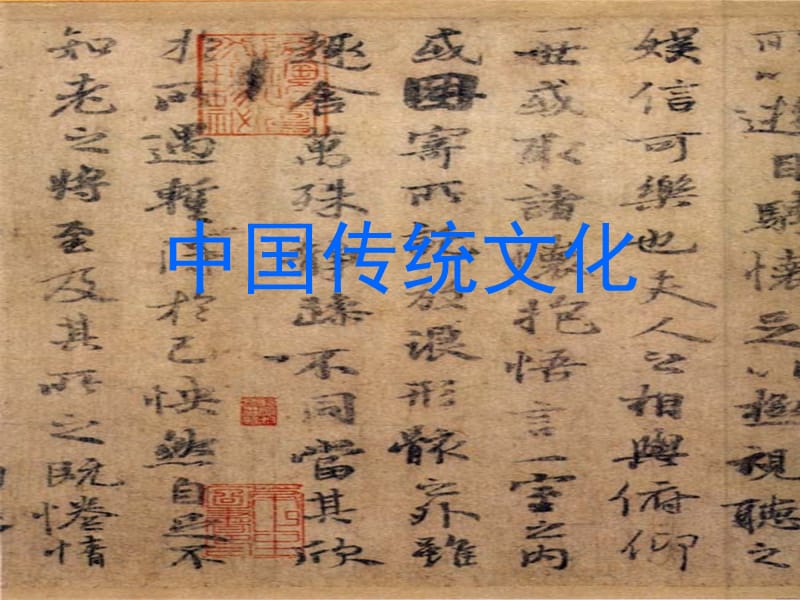 中国传统文化
所以遊目騁懷足以極視聽之
娛信可樂也夫人之相與俯仰
一世或取諸懷抱悟言一室之內
或因寄所託放浪形骸之外雖
趣舍萬殊靜躁不同當其欣
於所遇暫得於己怏然自足不
知老之將至及其所之既惓情